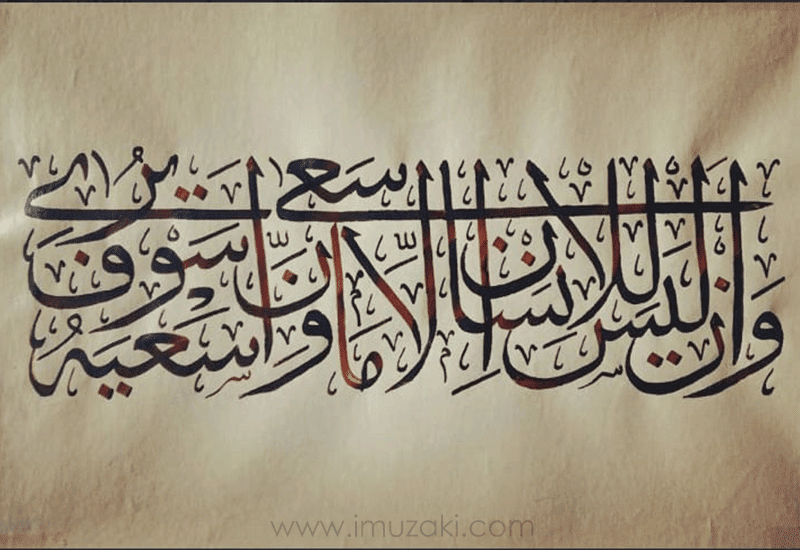 وَأَن لَيْسَ لِلْإِنسَانِ إِلَّا مَا سَعَى وَأَنَّ سَعْيَهُ سَوْفَ يُرَى
www.imuzaki.com